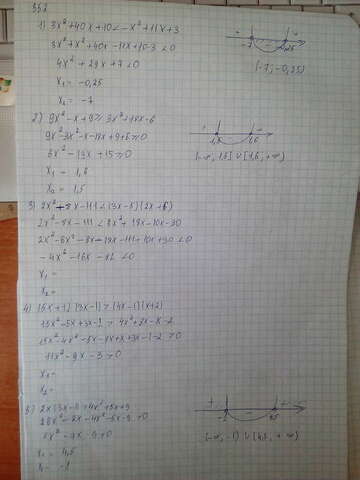 352
1) 3x² + 40x + 10 < -x² + 11x + 3
3x² + x² + 40x - 11x + 10 - 3 < 0
4x² + 29x + 7 < 0
x₁ = -0,25
x₂ = -7
-7 -0,25
(-7; -0,25)
2) 9x² - x + 9 ≥ 3x² + 18x - 6
9x² - 3x² - x - 18x + 9 + 6 ≥ 0
6x² - 19x + 15 ≥ 0
x₁ = 1,6
x₂ = 1,5
1,5 1,6
(-∞, 1,5] ∪ [1,6, +∞)
3) 2x² + 8x - 111 < (3x - 5)(2x + 6)
2x² - 8x - 111 < 6x² + 18x - 10x - 30
2x² - 6x² - 8x - 18x - 111 + 10x + 30 < 0
-4x² - 16x - 81 < 0
x₁ =
x₂ =
4) (5x + 1)(3x - 1) > (4x - 1)(x + 2)
15x² - 5x + 3x - 1 > 4x² + 8x - x - 2
11x² - 9x - 3 > 0
x₁ =
x₂ =
5) 2x(3x - 1) > 4x² + 5x + 9
2x² - 7x - 9 > 0
x₁ = 4,5
x₂ = -1
-1 4,5
(-∞, -1) ∪ (4,5, +∞)